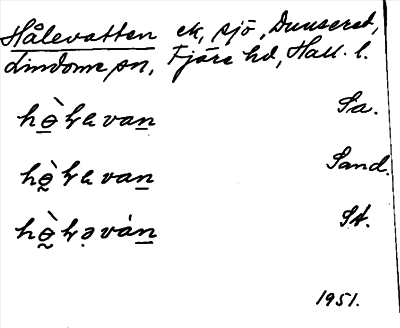 Hålevatten ek, sjö, Dunserед,
Lindome sn, Fjäre hd, Hall. l.
hɵ̀ƚavan Sa.
hɵ̀ƚavan Sand.
hɵ̀ƚəván St.
1951.